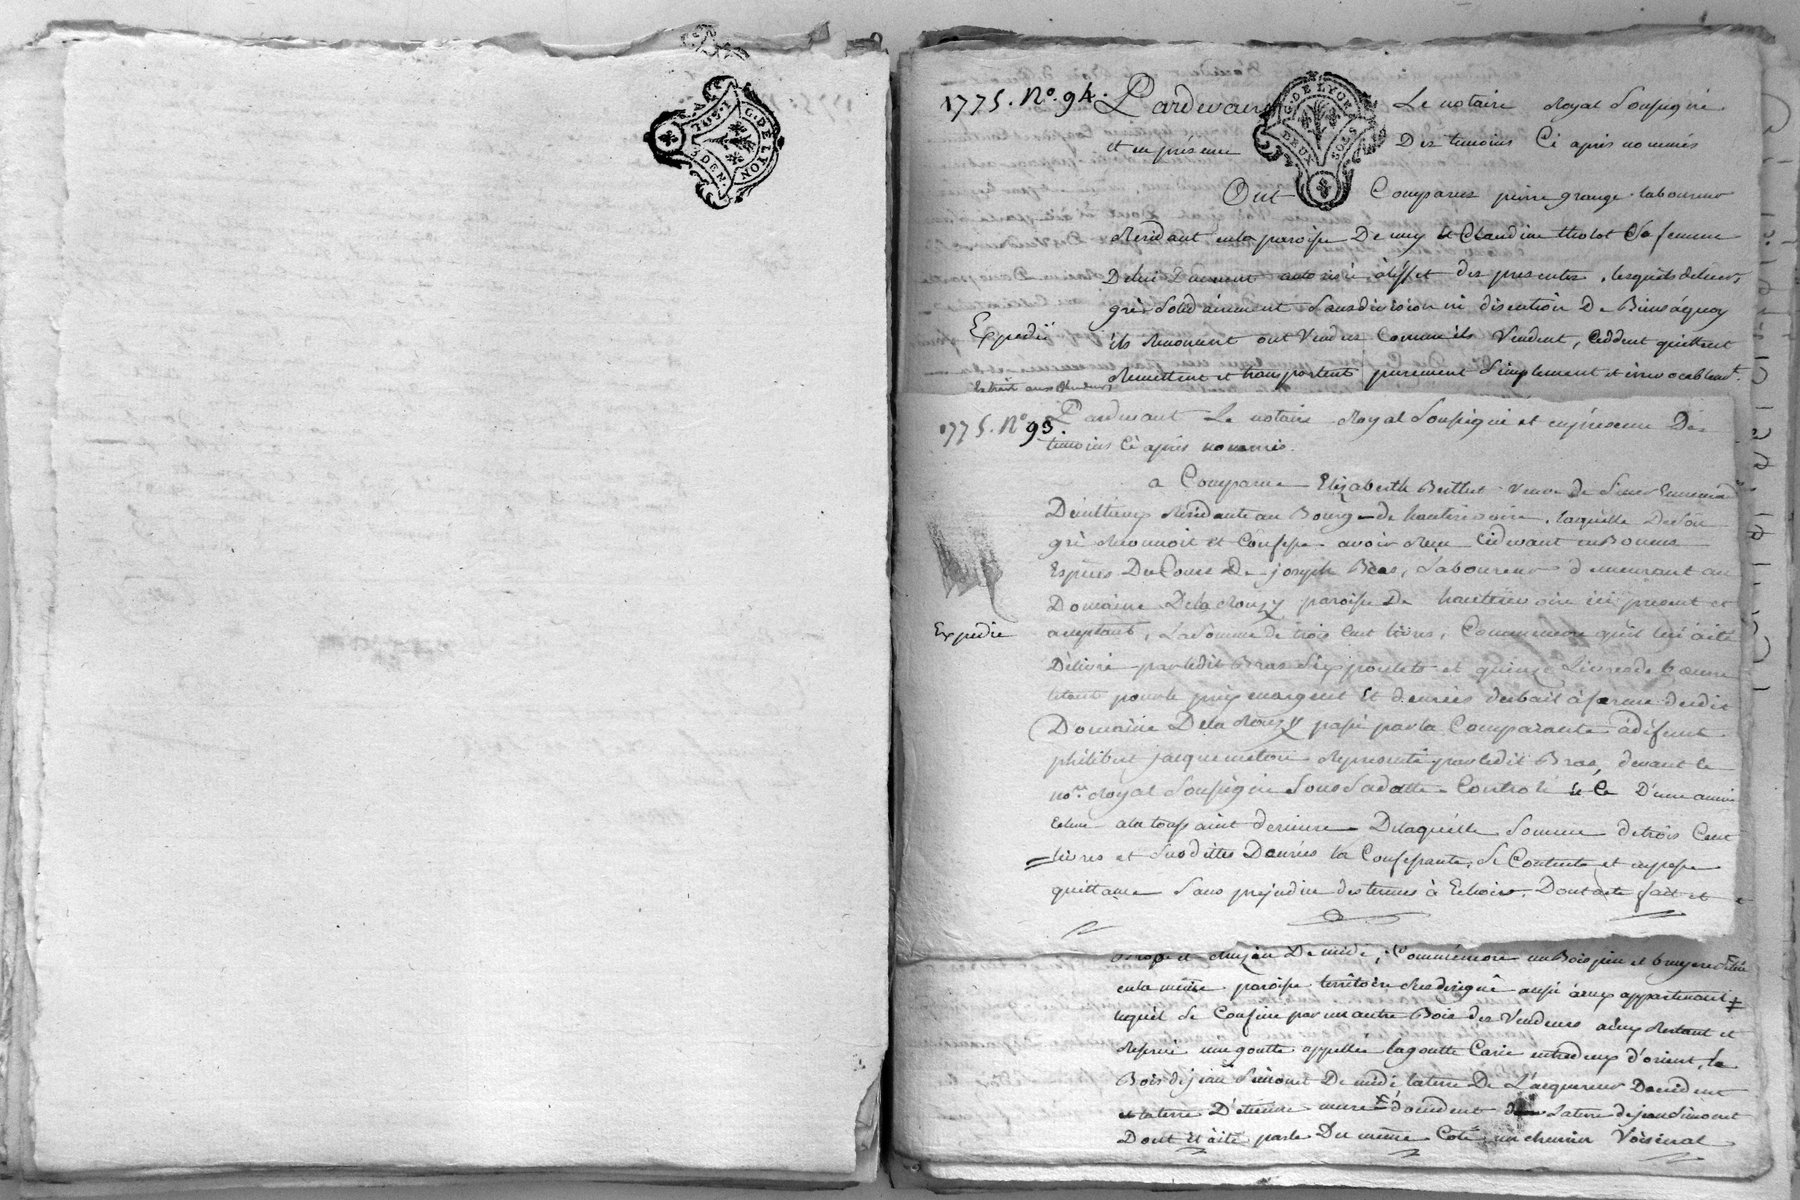 G. DE LYON
3 DEN.
1775. No. 94. Pardevant Le notaire Royal Soussigné
G. DE LYON
DEUX SOLS
et en presence Des temoins Ci après nommés
Ont Comparus pierre grange laboureur
Résidant en la paroisse De et Claudine tholot Sa femme
De lui Duement autorisée à l'effet des presentes, lesquels de leur
gré Solidairement Sans division ni discution De Biens à quoy
Expedié
ils Renoncent ont Vendus Comme ils Vendent, Cèddent quittent
Remettent et transportent purement Simplement et irrevocablemt.
1775. No. 95. Pardevant Le notaire Royal Soussigné et en présence Des
temoins Ci après nommés.
a Comparue Elizabeth Berthet veuve de Sieur
Résidante au Bourg de hauterivoire, laquelle De Son
gré Reconnoit et Confesse avoir Reçu Cidevant en Bonnes
Espèces De Cours De joseph Bras, Laboureur demeurant au
Domaine De la Rouzy paroisse De hauterivoire ici present et
Expedié
acceptant, La Somme de trois Cent livres, Comme encore qu'il lui a été
Délivré par ledit Bras Six poulets et quinze Livres de beurre
le tout pour le prix en argent Et denrées du bail à ferme dudit
Domaine De la Rouzy passé par la Comparante à défunt
philibert jacquemetton Représenté par ledit Bras, devant le
nore. Royal Soussigné Sous Sa datte Controlé D'une année
Echue a la toussaint derniere De laquelle Somme de trois Cent
livres et Susdittes Denrées la Confessante, Se Contente et en passe
quittance Sans prejudice des termes à Echoir. Dont acte fait et
De midi, Comme encore un Bois pin et bruyere
en la même paroisse territoire Susdésigné aussi à eux appartenant
lequel Se Confine par un autre Bois des Vendeurs à eux Restant et
Reservé une goutte appellée la goutte entre deux d'orient, le
Bois de jean Simonet De midi la terre De L'acquereur Doccident
et la terre D'etienne d'occident La terre de jean Simonet
Dont Et a été parlé Du même Coté un chemin Voisinal